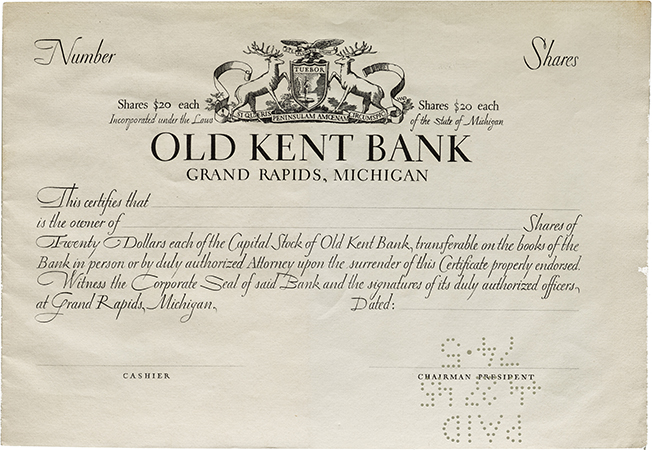 Number
Shares
TUEBOR
PENINSULAM AMŒNAM
Shares $20 each
Shares $20 each
Incorporated under the Laws
of the State of Michigan
OLD KENT BANK
GRAND RAPIDS, MICHIGAN
This certifies that
is the owner of Shares of
Twenty Dollars each of the Capital Stock of Old Kent Bank, transferable on the books of the
Bank in person or by duly authorized Attorney upon the surrender of this Certificate properly endorsed.
Witness the Corporate Seal of said Bank and the signatures of its duly authorized officers,
at Grand Rapids, Michigan. Dated:
CASHIER
CHAIRMAN PRESIDENT
PAID